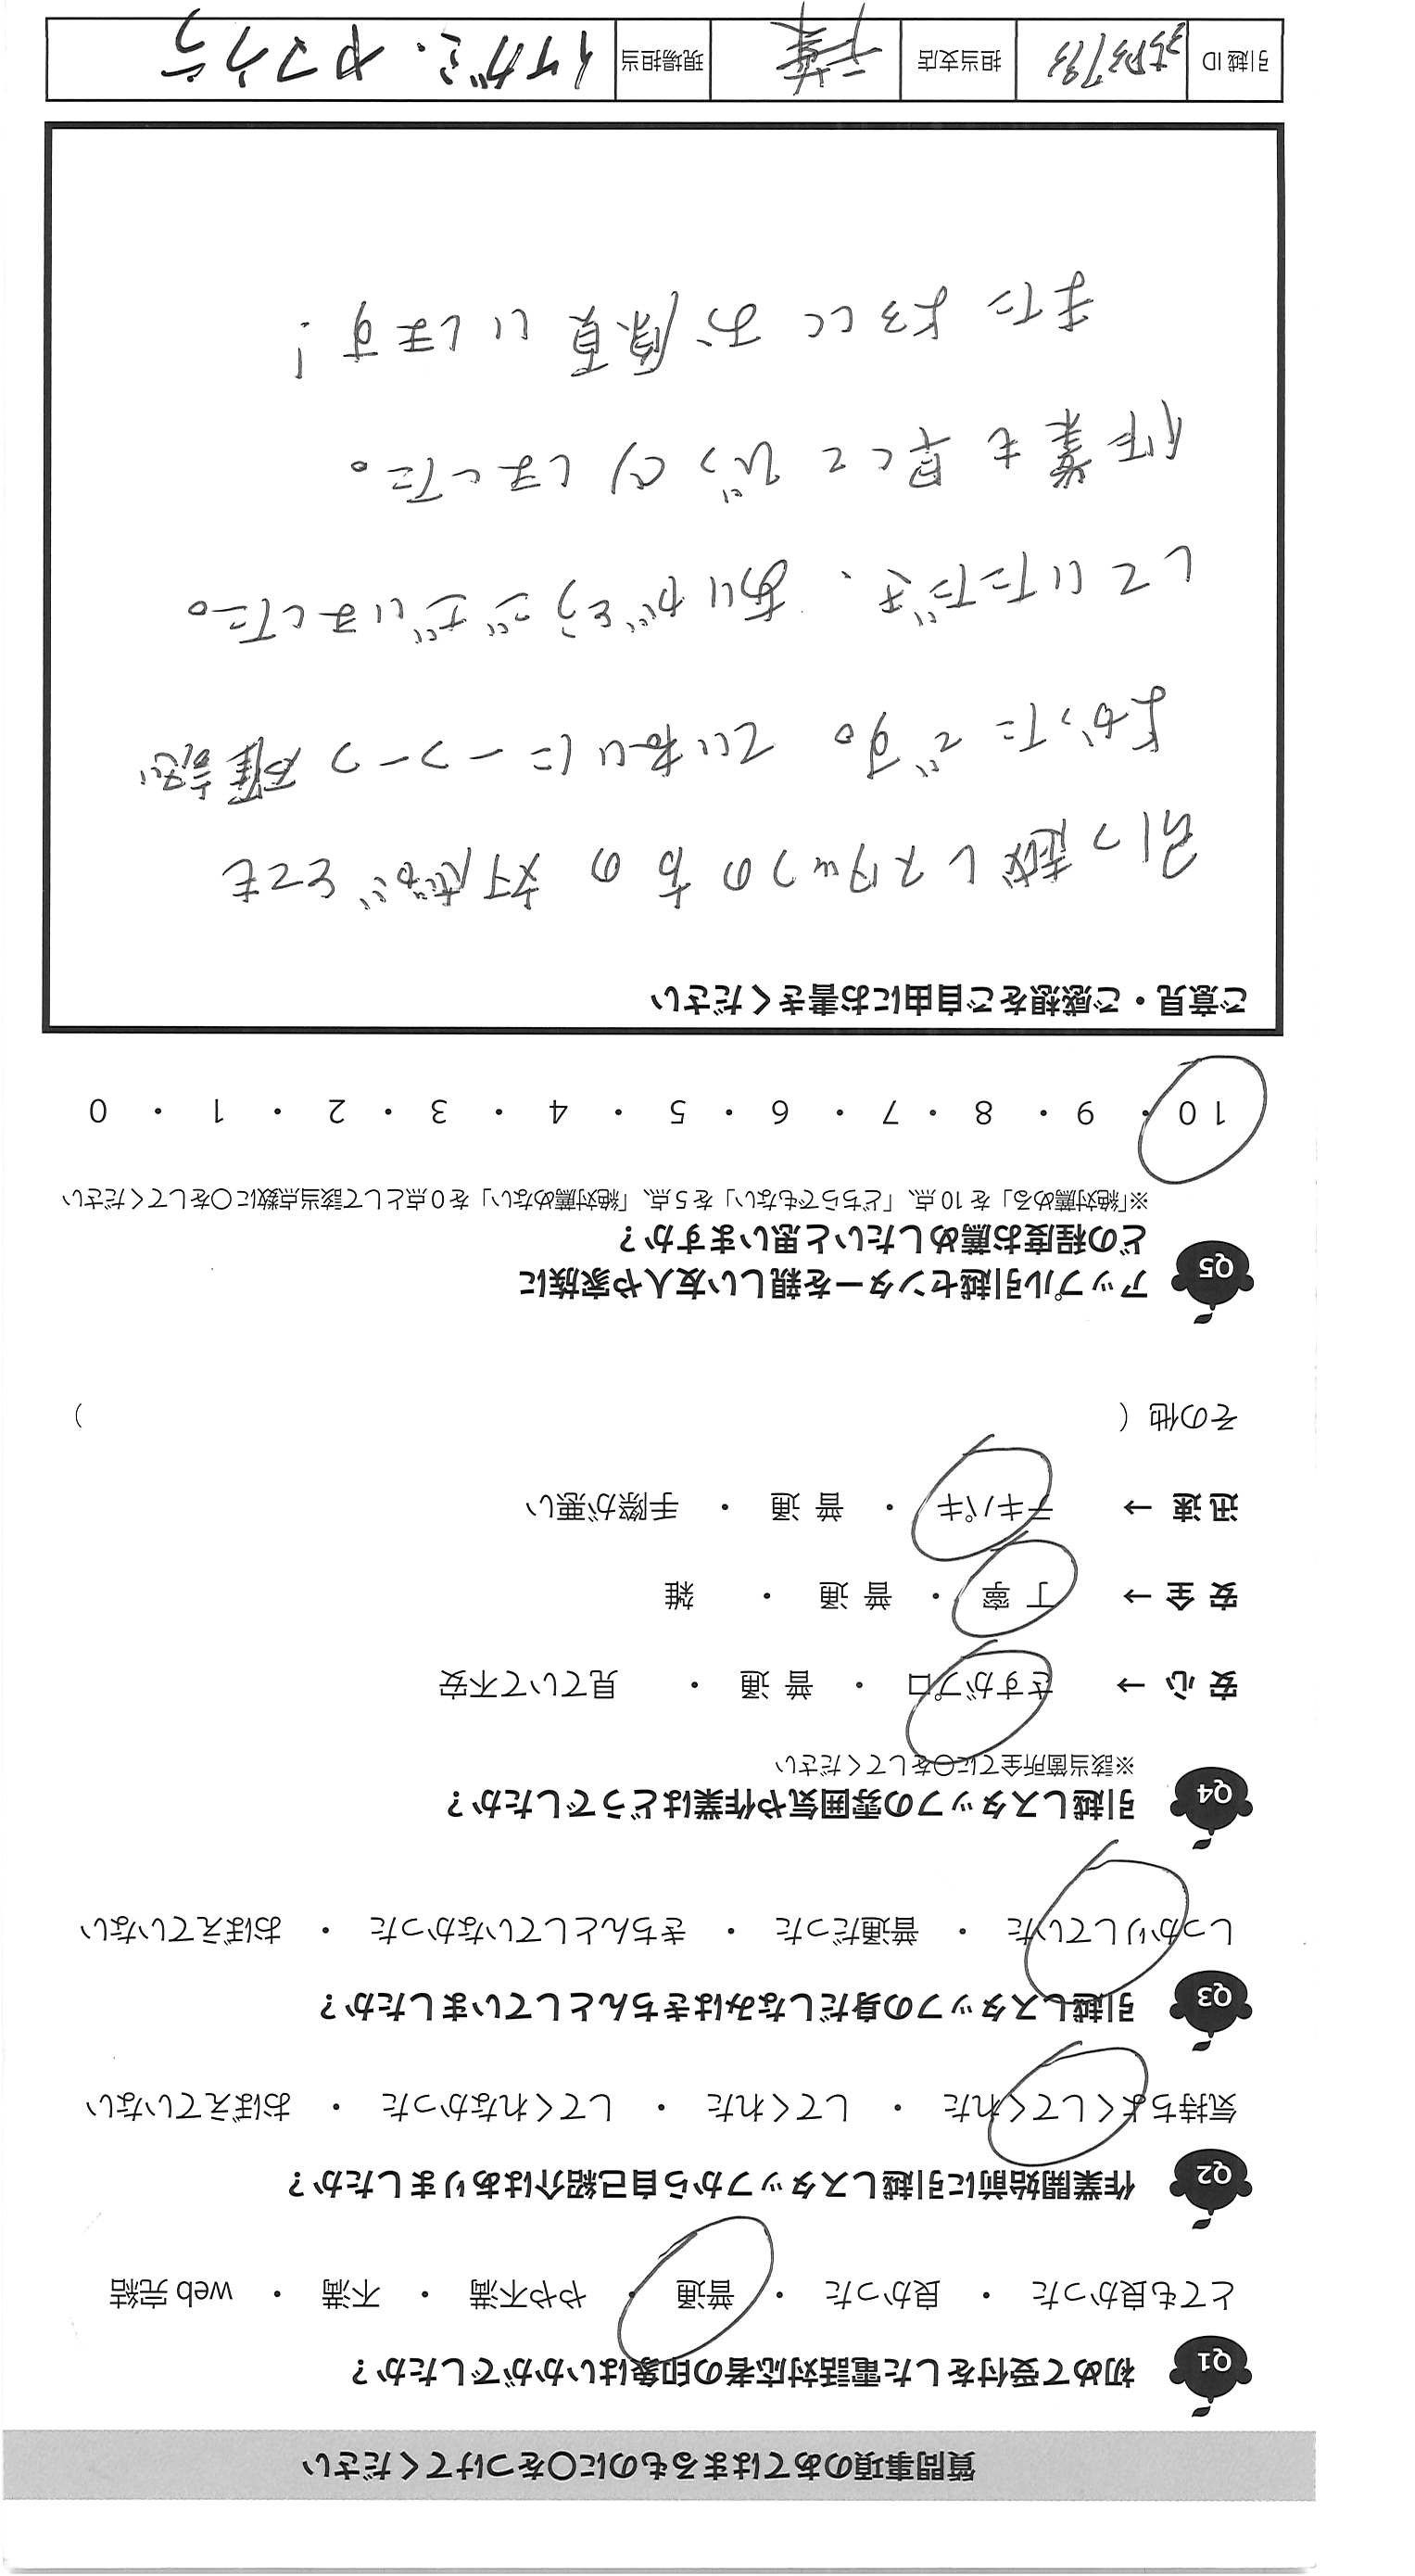 質問事項のあてはまるものに〇をつけてください
Q1 初めて受付をした電話対応者の印象はいかがでしたか？
とても良かった ・ 良かった ・ 普通 ・ やや不満 ・ 不満 ・ web 完結
Q2 作業開始前に引越しスタッフから自己紹介はありましたか？
気持ちよくしてくれた ・ してくれた ・ してくれなかった ・ おぼえていない
Q3 引越しスタッフの身だしなみはきちんとしていましたか？
しっかりしていた ・ 普通だった ・ きちんとしていなかった ・ おぼえていない
Q4 引越しスタッフの雰囲気や作業はどうでしたか？
※該当箇所全てに〇をしてください
安 心 → さすがプロ ・ 普 通 ・ 見ていて不安
安 全 → 丁 寧 ・ 普 通 ・ 雑
迅 速 → テキパキ ・ 普 通 ・ 手際が悪い
その他（ ）
Q5 アップル引越センターを親しい友人や家族に
どの程度お薦めしたいと思いますか？
※「絶対薦める」を 10 点、「どちらでもない」を 5 点、「絶対薦めない」を 0 点として該当点数に〇をしてください
10 ・ 9 ・ 8 ・ 7 ・ 6 ・ 5 ・ 4 ・ 3 ・ 2 ・ 1 ・ 0
ご意見・ご感想をご自由にお書きください
引っ越しスタッフの方の対応がとても
よかったです。ていねいに一つ一つ確認
していただき、ありがとうございました。
作業も早くてびっくりしました。
またよろしくお願いします！
引越 ID 担当支店 千葉 現場担当